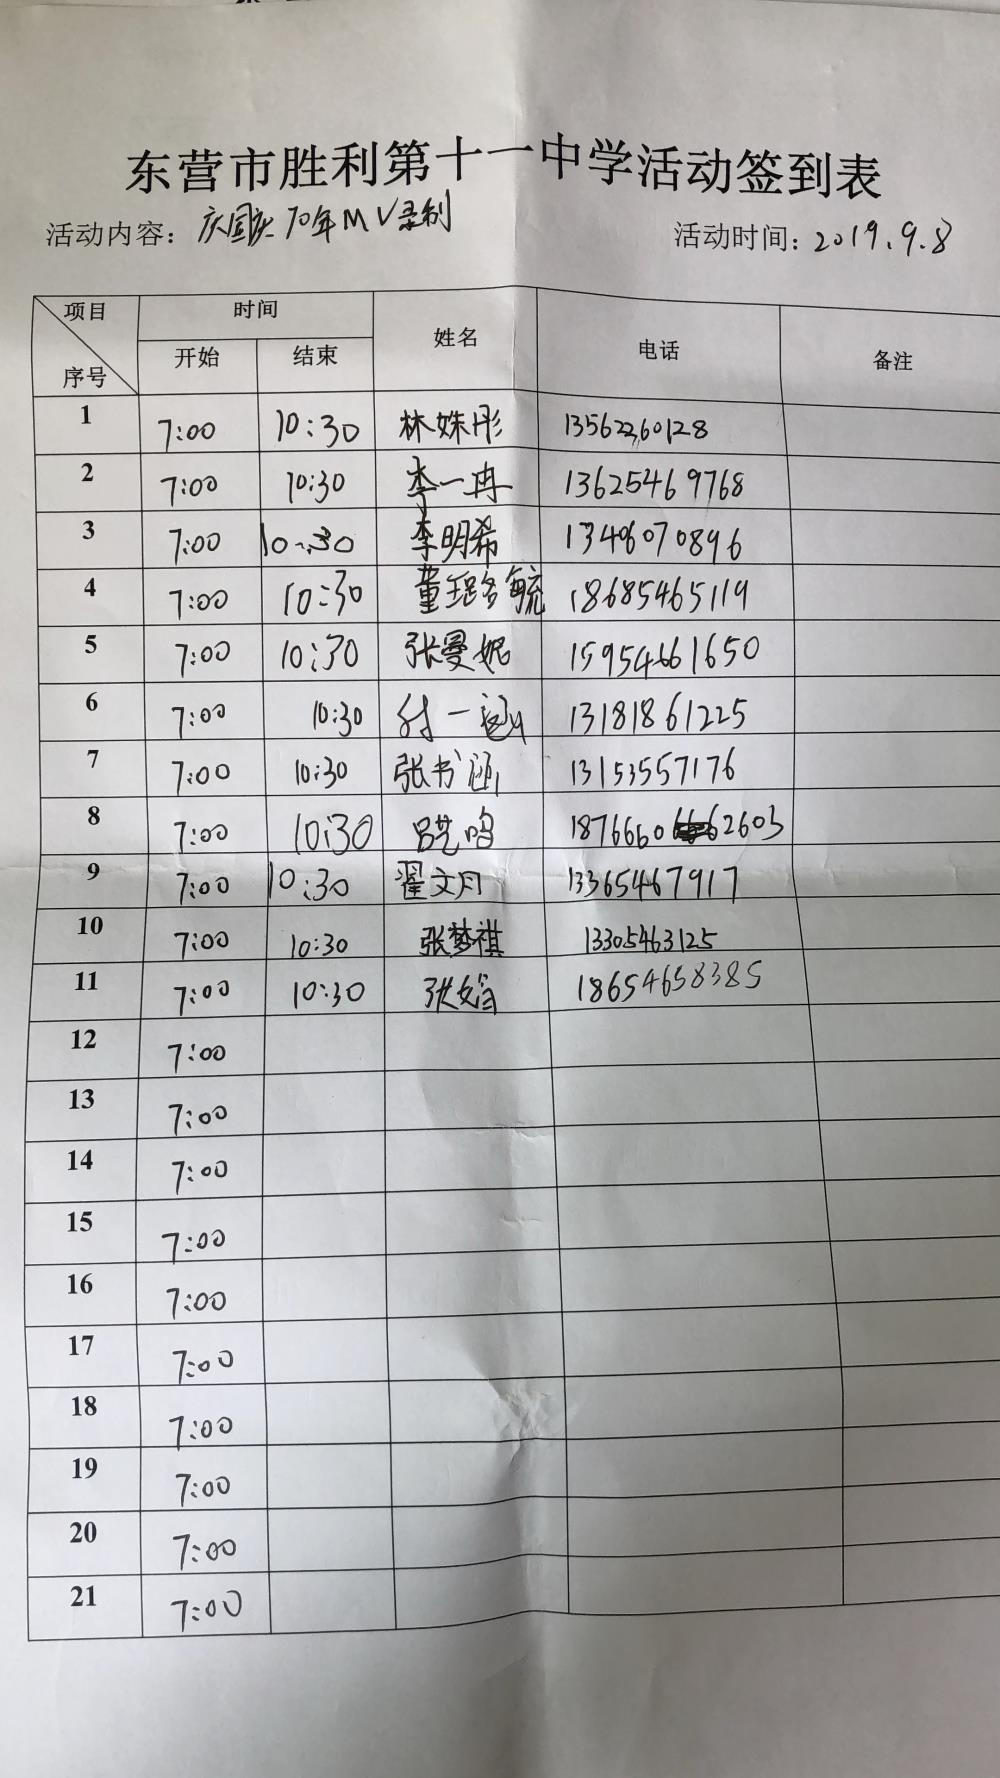 东营市胜利第十一中学活动签到表
活动内容：庆国庆70年MV录制 活动时间：2019.9.8
项目 时间 姓名 电话 备注
序号 开始 结束
1 7:00 10:30 林姝彤 13562260128
2 7:00 10:30 李一冉 13625469768
3 7:00 10:30 李明希 13406070896
4 7:00 10:30 董璐毓 18685465119
5 7:00 10:30 张曼妮 15954661650
6 7:00 10:30 付一涵 13181861225
7 7:00 10:30 张书涵 13153557176
8 7:00 10:30 吕艺鸣 18766602603
9 7:00 10:30 翟文月 13365467917
10 7:00 10:30 张梦祺 13305463125
11 7:00 10:30 张 18654658385
12 7:00
13 7:00
14 7:00
15 7:00
16 7:00
17 7:00
18 7:00
19 7:00
20 7:00
21 7:00